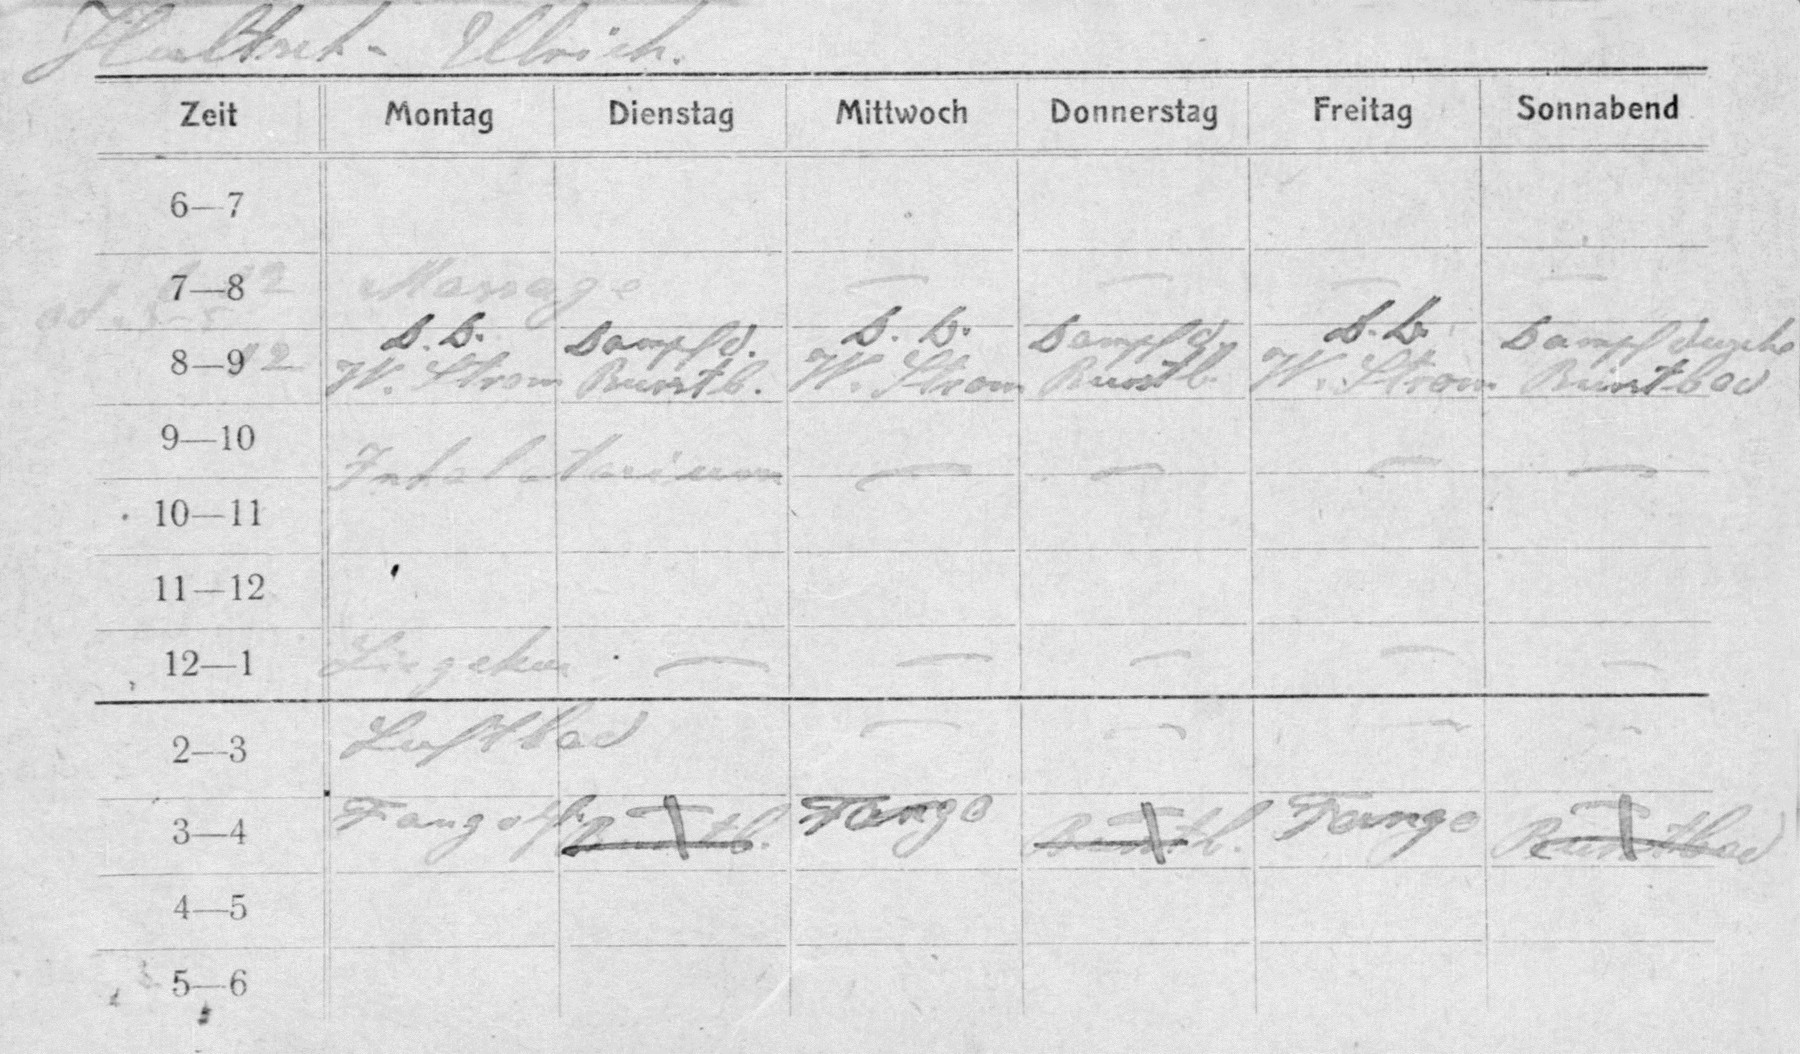 Ulrich.
Zeit Montag Dienstag Mittwoch Donnerstag Freitag Sonnabend
6—7
7—8 Massage — — — —
D. B. D. B. D. B.
8—9 Dampfd. Dampfd. Dampfdusche
W. Strom Burstb. W. Strom Burstb. W. Strom Burstbad
9—10
Inhalatorium — — — —
10—11
11—12
12—1 Liegekur — — — — —
2—3 Luftbad — — — —
3—4 Fango Burstb. Fango Burstb. Fango Burstbad
4—5
5—6